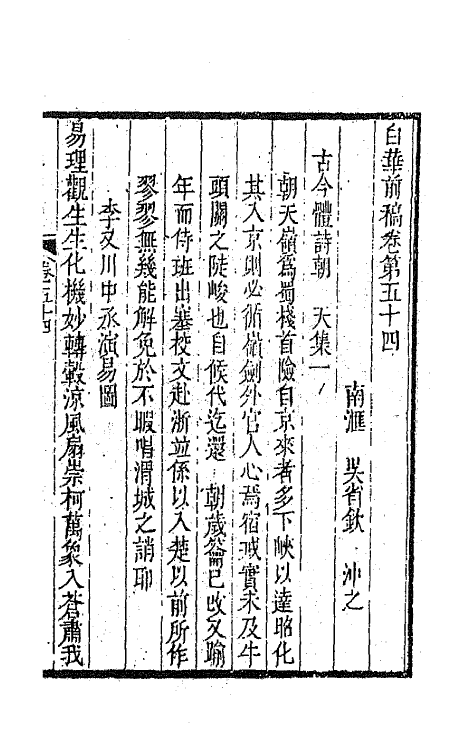 白華前稿卷第五十四
南滙 吳省欽 冲之
古今體詩朝 天集一
朝天嶺爲蜀棧首險自京來者多下峽以達昭化
其入京則必循嶺劍外官人心焉宿戒實未及牛
頭關之陡峻也自候代迄還 朝歲籥已改又踰
年而侍班出塞校文赴浙並係以入楚以前所作
翏翏無幾能解免於不暇唱渭城之誚耶
李又川中丞演易圖
易理觀生生化機妙轉轂涼風扇崇柯萬象入蒼肅我
卷五十四